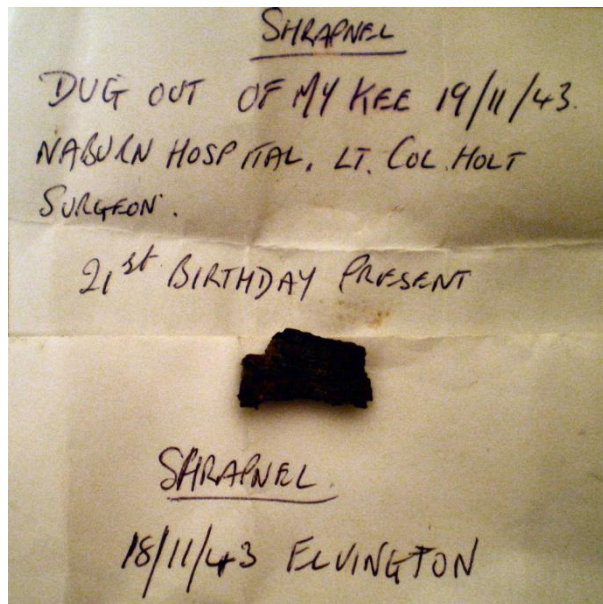 SHRAPNEL
DUG OUT OF MY KEE 19/11/43.
NABURN HOSPITAL, LT. COL. HOLT
SURGEON.
21st BIRTHDAY PRESENT
SHRAPNEL.
18/11/43 ELVINGTON